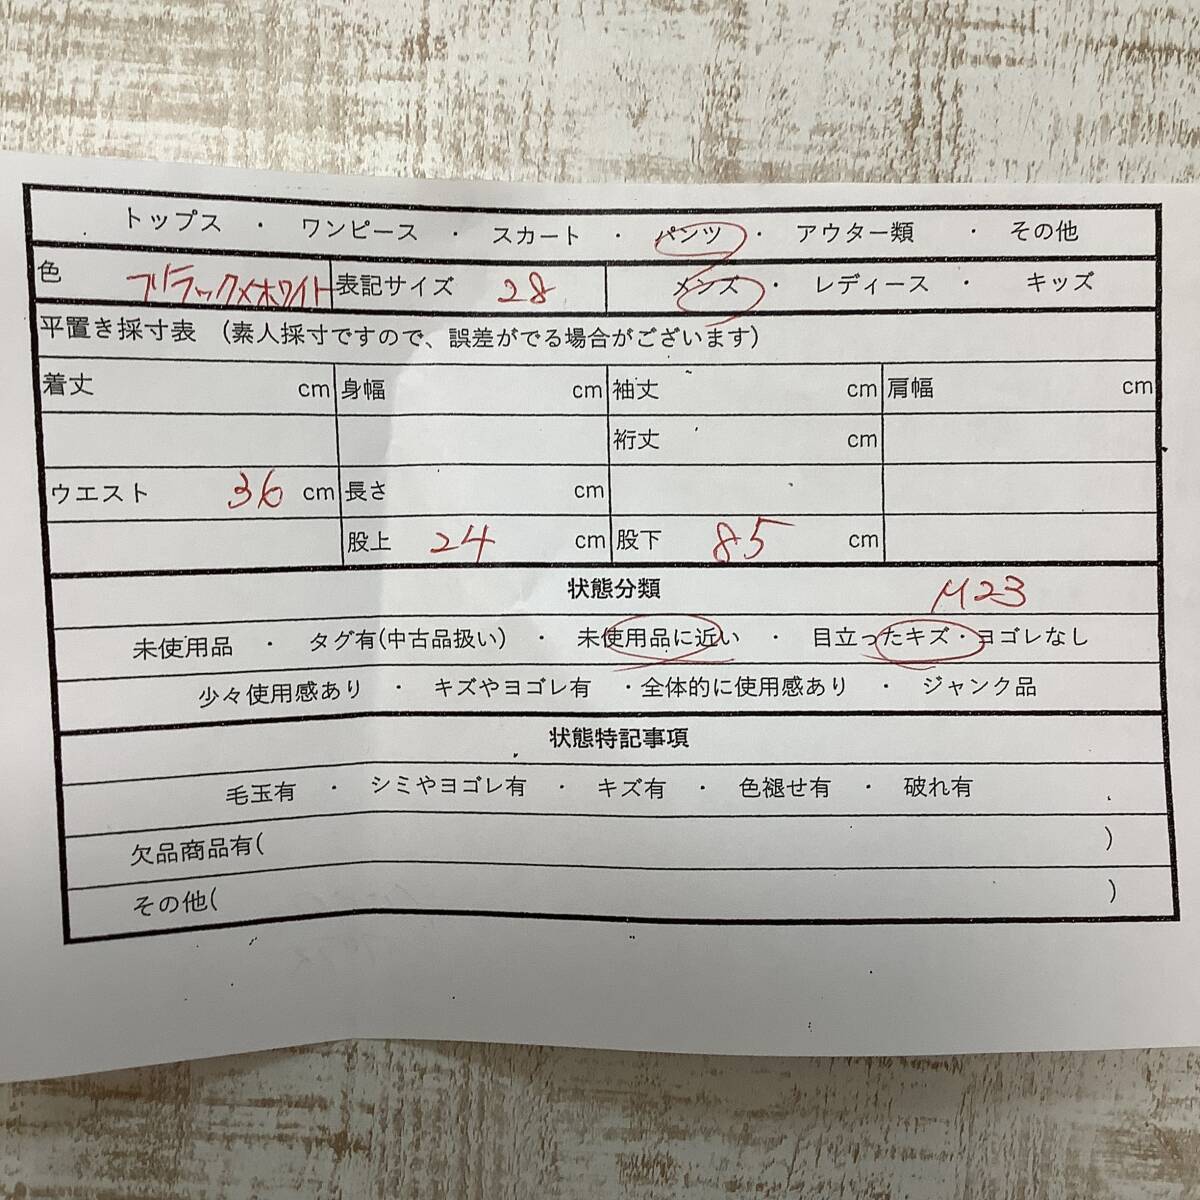 トップス ・ ワンピース ・ スカート ・ パンツ ・ アウター類 ・ その他
色 ブラック×ホワイト 表記サイズ 28 メンズ ・ レディース ・ キッズ
平置き採寸表 (素人採寸ですので、誤差がでる場合がございます)
着丈 cm 身幅 cm 袖丈 cm 肩幅 cm
裄丈 cm
ウエスト 36 cm 長さ cm
股上 24 cm 股下 85 cm
状態分類 M23
未使用品 ・ タグ有(中古品扱い) ・ 未使用品に近い ・ 目立ったキズ・ヨゴレなし
少々使用感あり ・ キズやヨゴレ有 ・全体的に使用感あり ・ ジャンク品
状態特記事項
毛玉有 ・ シミやヨゴレ有 ・ キズ有 ・ 色褪せ有 ・ 破れ有
欠品商品有( )
その他( )